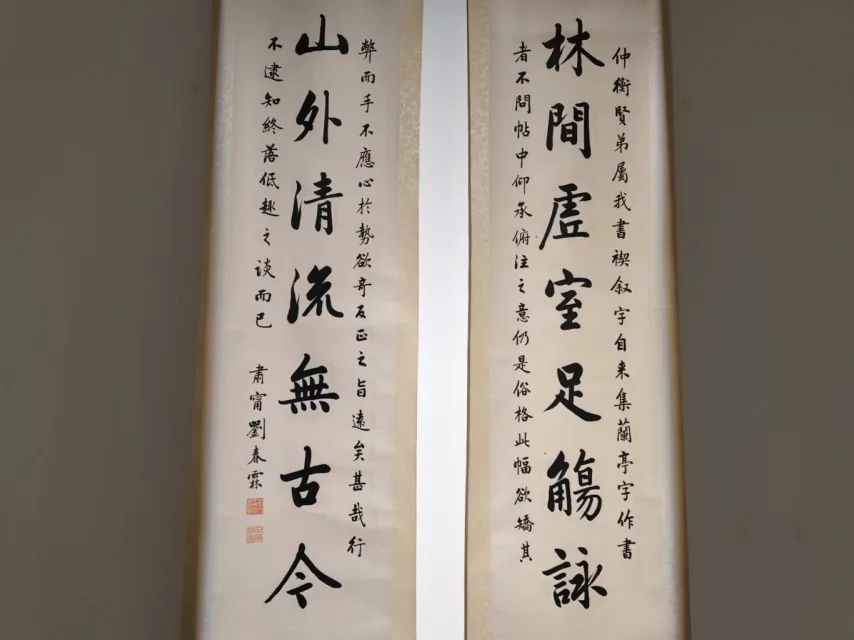 仲衡賢弟屬我書禊叙字自来集蘭亭字作書
林間虚室足觴詠
者不問帖中仰承俯注之意仍是俗格此幅欲矯其
弊而手不應心於勢欲奇反正之旨遠矣甚哉行
山外清流無古今
不逮知終落低趣之談而已
肅甯劉春霖